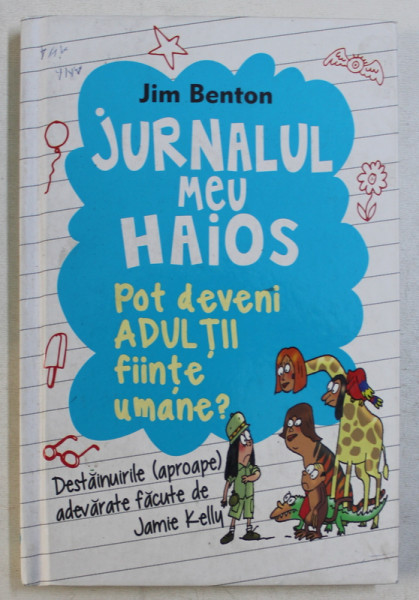 Jim Benton
JURNALUL
MEU
HAIOS
Pot deveni
ADULȚII
ființe
umane?
Destăinuirile (aproape)
adevărate făcute de
Jamie Kelly